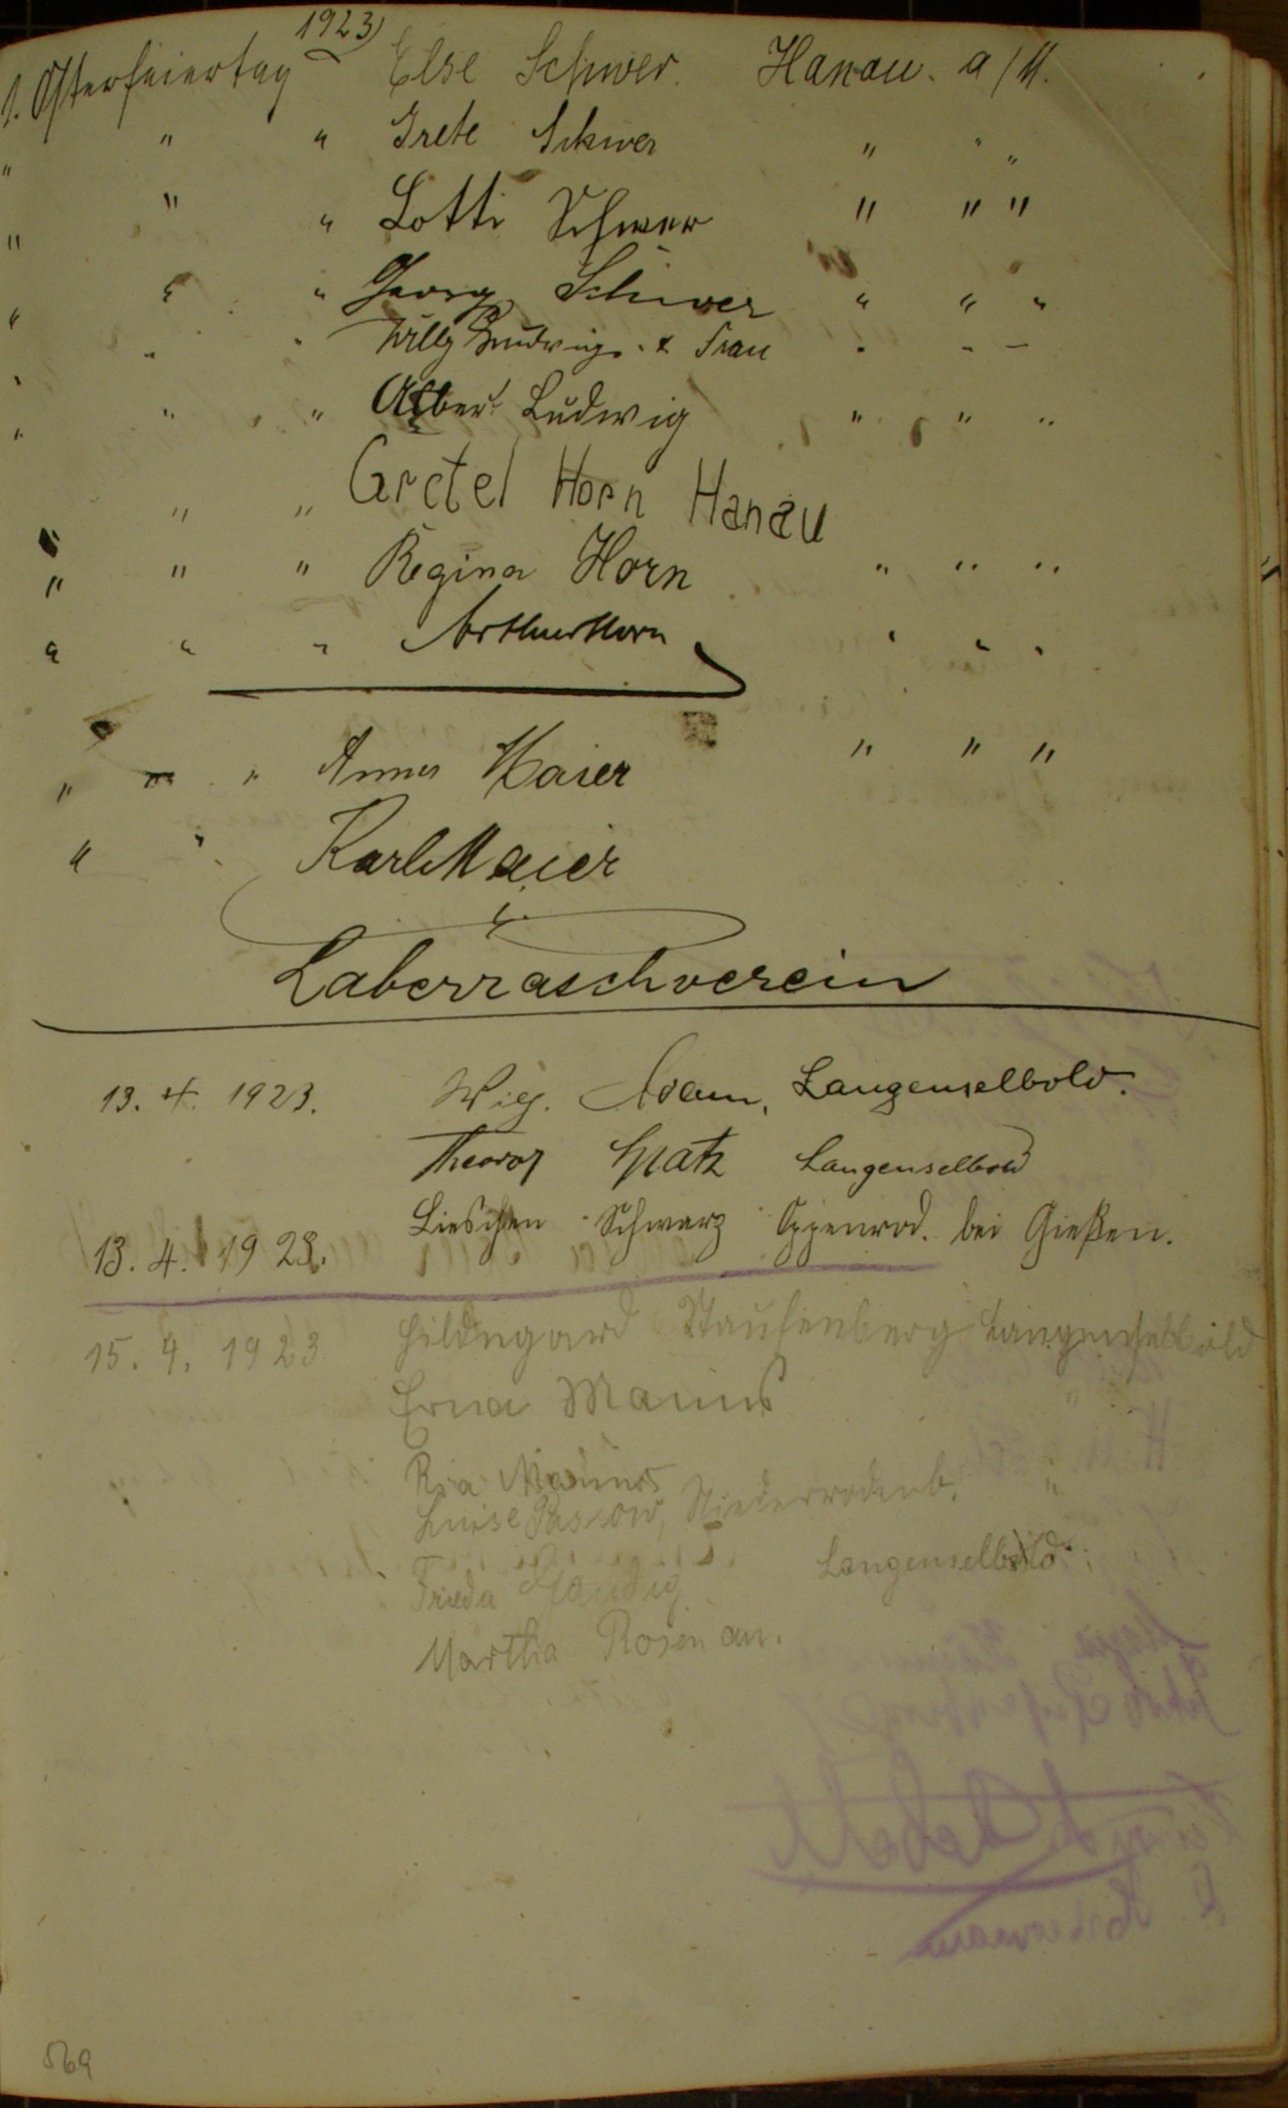 1923
1. Osterfeiertag Else Schwer. Hanau. a/M.
" " " Grete Schwer " " "
" " " Lotti Schwer " " "
" " " Georg Schwer " " "
" " " Willy Ludwig. & Frau " " "
" " " Albert Ludwig " " "
" " Gretel Horn Hanau
" " " Regina Horn " " "
" " " Arthur Horn " " "
" " " Anna Maier " " "
" " Karl Maier
Laberraschverein
13. 4. 1923. Wilh. Adam, Langenselbold.
Theodor Spatz Langenselbold
13. 4. 1923. Lieschen Schwarz Oppenrod. bei Gießen.
15. 4. 1923 Hildegard Staufenberg Langenselbold
Erna Manns "
Ria Manns "
Luise Passow, Niederrodenb.
Frieda Langenselbold
Martha Rosenau.
569